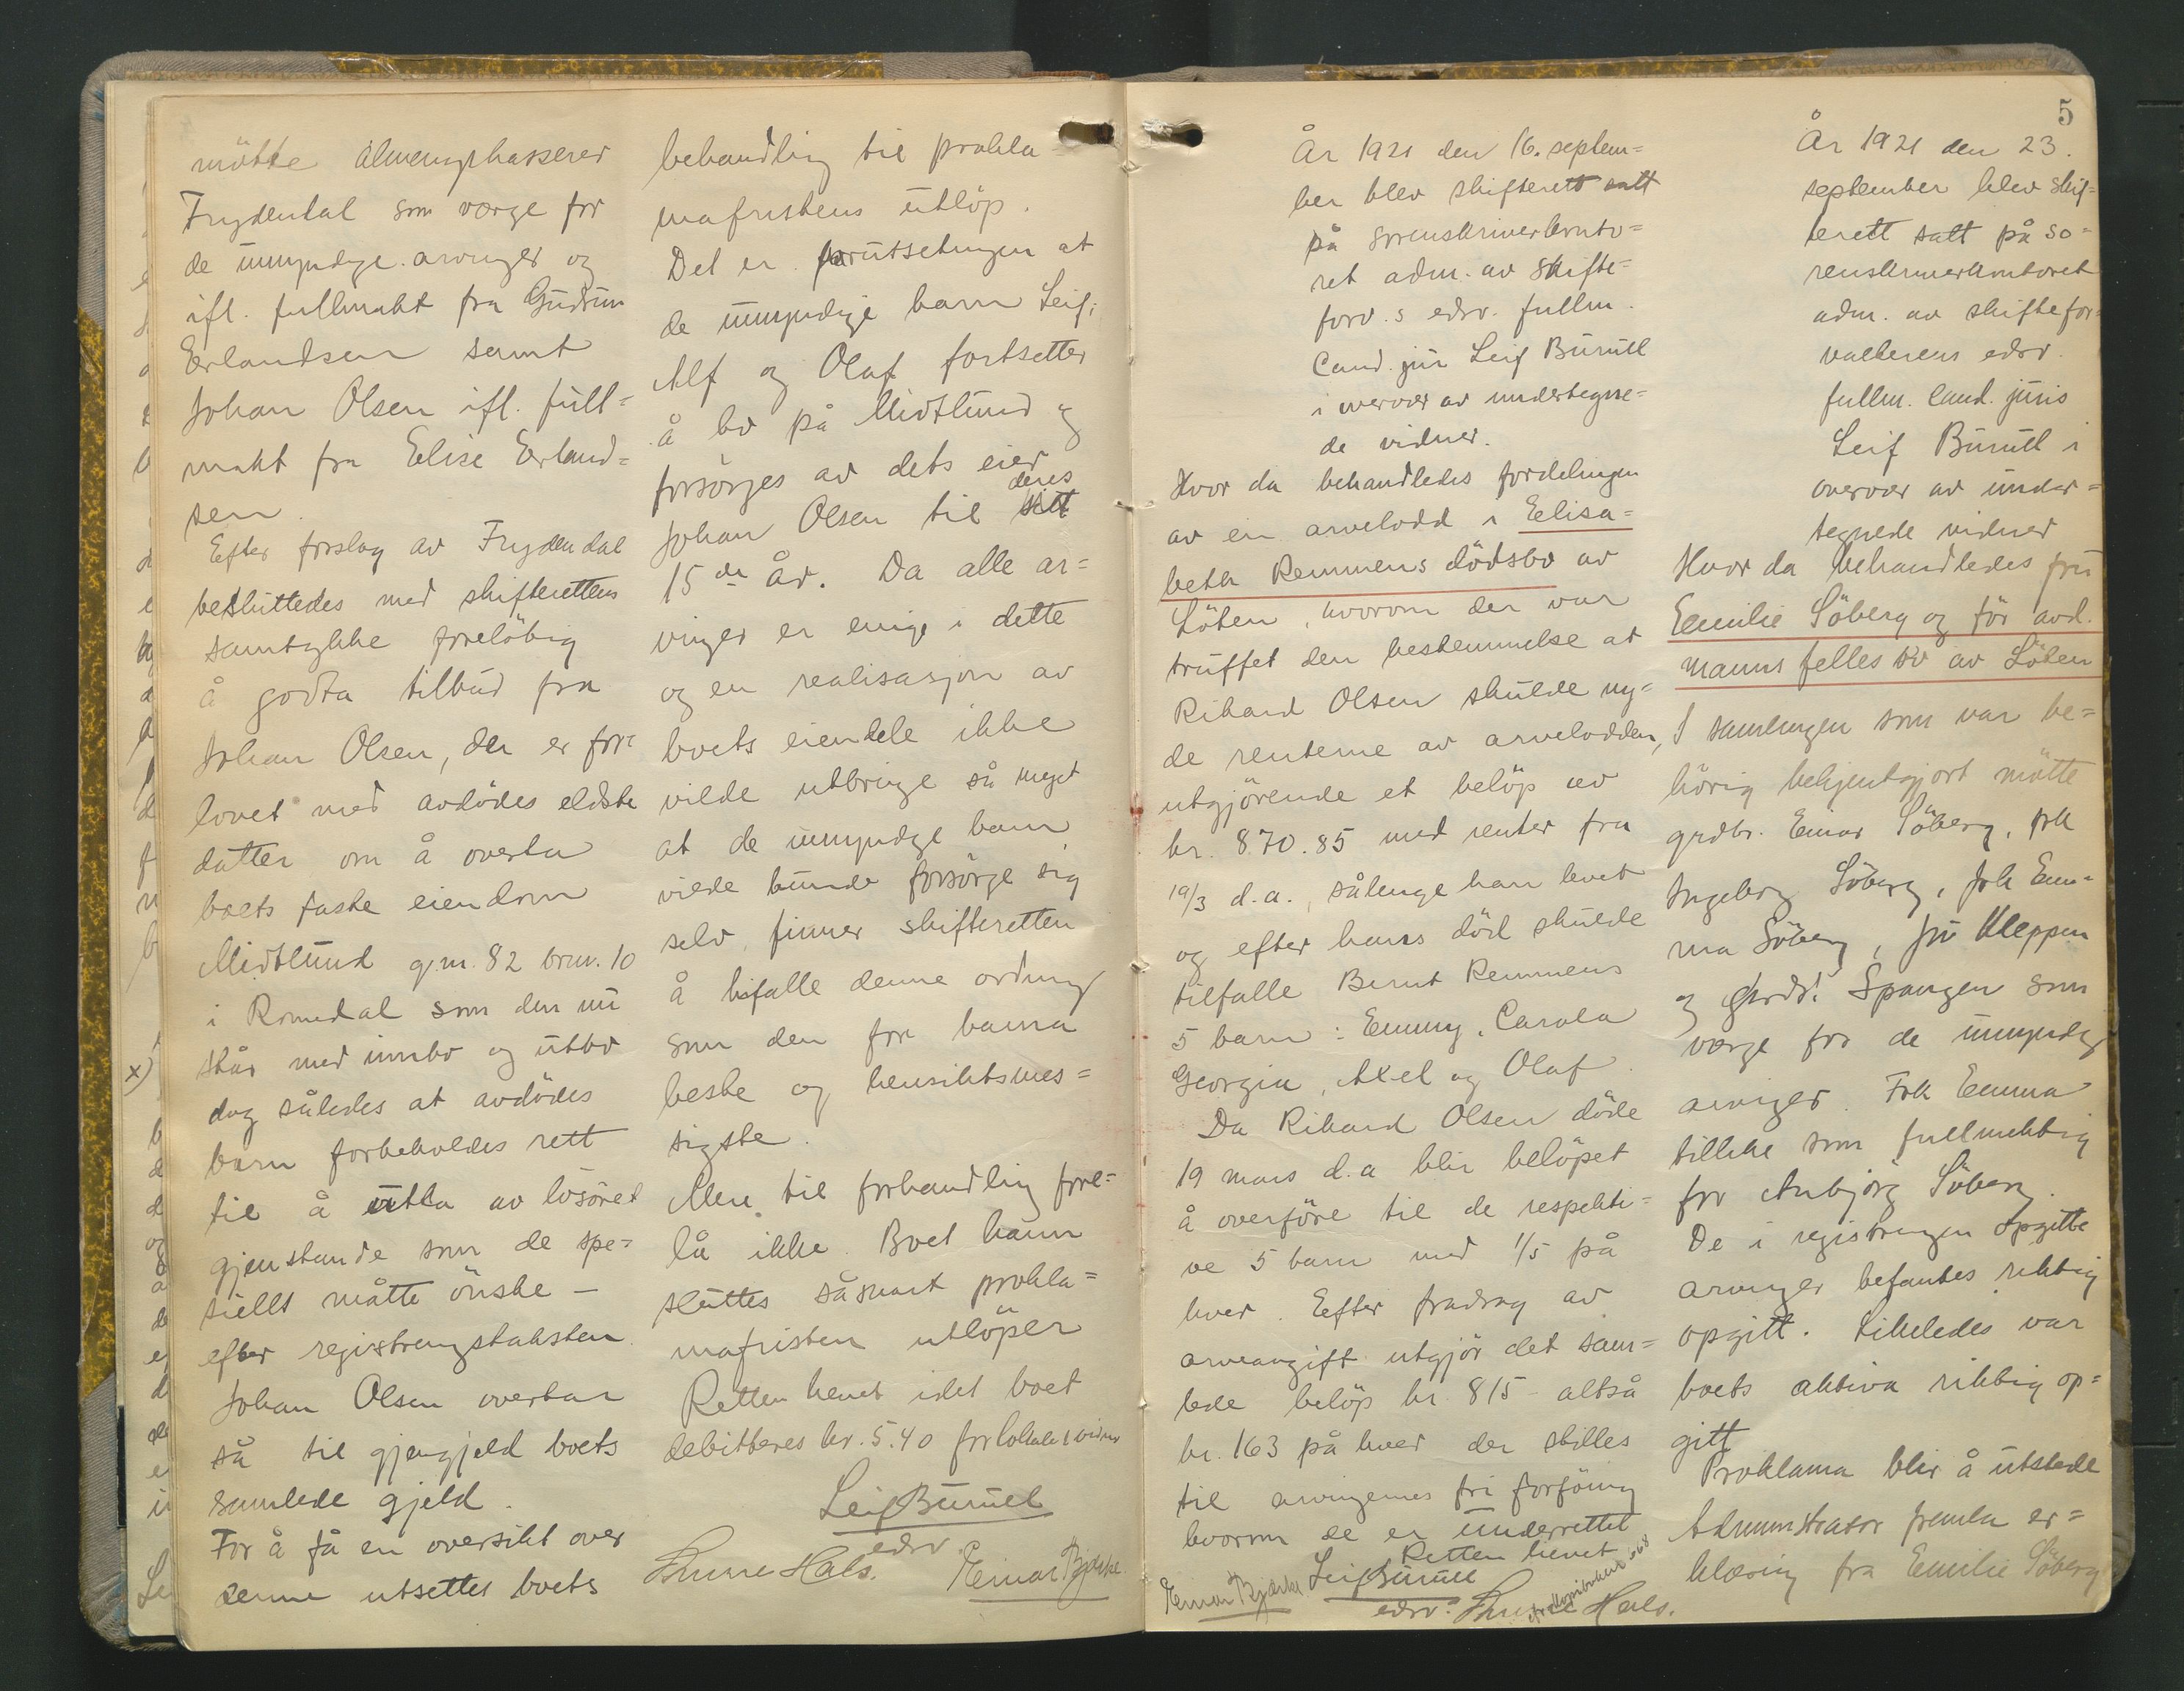 møtte almengkasserer
Frydental som verge for
de umyndige arvinger og
ifl. fullmakt fra Gudrun
Erlandsen samt
Johan Olsen ifl. full=
makt fra Elise Erland=
sen.
Efter forslag av Frydendal
besluttedes med skifterettens
samtykke foreløbig
å godta tilbud fra
Johan Olsen, der er for=
lovet med avdødes eldste
datter om å overta
boets faste eiendom
Midtlund g.nr. 82 brnr. 10
i Romedal som den nu
står med innbo og utbo
dog således at avdødes
barn forbeholdes rett
til å utta av løsøret
gjenstande som de spe=
sielt måtte ønske –
efter registreringstaksten.
Johan Olsen overtar
så til gjengjeld boets
samlede gjeld.
For å få en oversikt over
denne utsettes boets
behandling til prokla
mafristens utløp.
Det er forutsetningen at
de umyndige barn Leif,
Alf og Olaf fortsetter
å bo på Midtlund og
forsørges av dets eier
deres
Johan Olsen til sitt
15de år. Da alle ar=
vinger er enige i dette
og en realisasjon av
boets eiendele ikke
vilde utbringe så meget
at de umyndige barn
vilde kunde forsørge sig
selv, finner skifteretten
å bifalle denne ordning
som den for barna
beste og hensiktsmes=
sigste.
Mere til forhandling fore=
lå ikke. Boet kann
sluttes såsnart prokla=
mafristen utløper
Retten hevet idet boet
debitteres kr. 5.40 for lokale &amp; vidner
Leif Burull
edsv.
Thune Hals. Einar Bjørke.
x)
5
År 1921 den 16. septem=
ber blev skifterett satt
på sorenskriverkonto=
ret adm. av skifte=
forv.s edsv. fullm.
Cand. jur Leif Burull
i overvær av undertegne=
de vidner.
Hvor da behandledes fordelingen
av en arvelodd i Elisa=
beth Remmens dødsbo av
Løten, hvorom der var
truffet den bestemmelse at
Rikard Olsen skulde ny=
de renterne av arvelodden,
utgjørende et beløp av
kr. 870.85 med renter fra
19/3 d.a., sålenge han levet
og efter hans død skulde
tilfalle Bernt Remmens
5 barn: Emmy, Carola
Georgia, Axel og Olaf.
Da Rikard Olsen døde
19 mars d.a blir beløpet
å overføre til de respekti=
ve 5 barn med 1/5 på
hver. Efter fradrag av
arveavgift utgjør det sam=
lede beløp kr. 815 – altså
kr. 163 på hver der stilles
til arvingernes fri forføining
hvorom de er underrettet
Retten hevet
Einar Bjørke Leif Burull
edsv. Thune Hals.
År 1921 den 23.
september blev skif=
terett satt på so=
renskriverkontoret
adm. av skiftefor=
valterens edsv.
fullm. cand. juris
Leif Burull i
overvær av under=
tegnede vidner
Hvor da behandledes fru
Emilie Søberg og før avd.
manns felles bo av Løten
I samlingen som var be=
hørig bekjentgjort møtte
grdbr. Einar Søberg, frk
Ingeborg Søberg, frk Em=
ma Søberg, fru Kleppen
og grdbr. Spangen som
verge for de umyndige
arvinger. Frk Emma
tillike som fullmektig
for Anbjørg Søberg.
De i registreringen opgitte
arvinger befantes riktig
opgitt. Likeledes var
boets aktiva riktig op=
gitt
Proklama blir å utstede
Administrator fremla er=
klæring fra Emilie Søberg